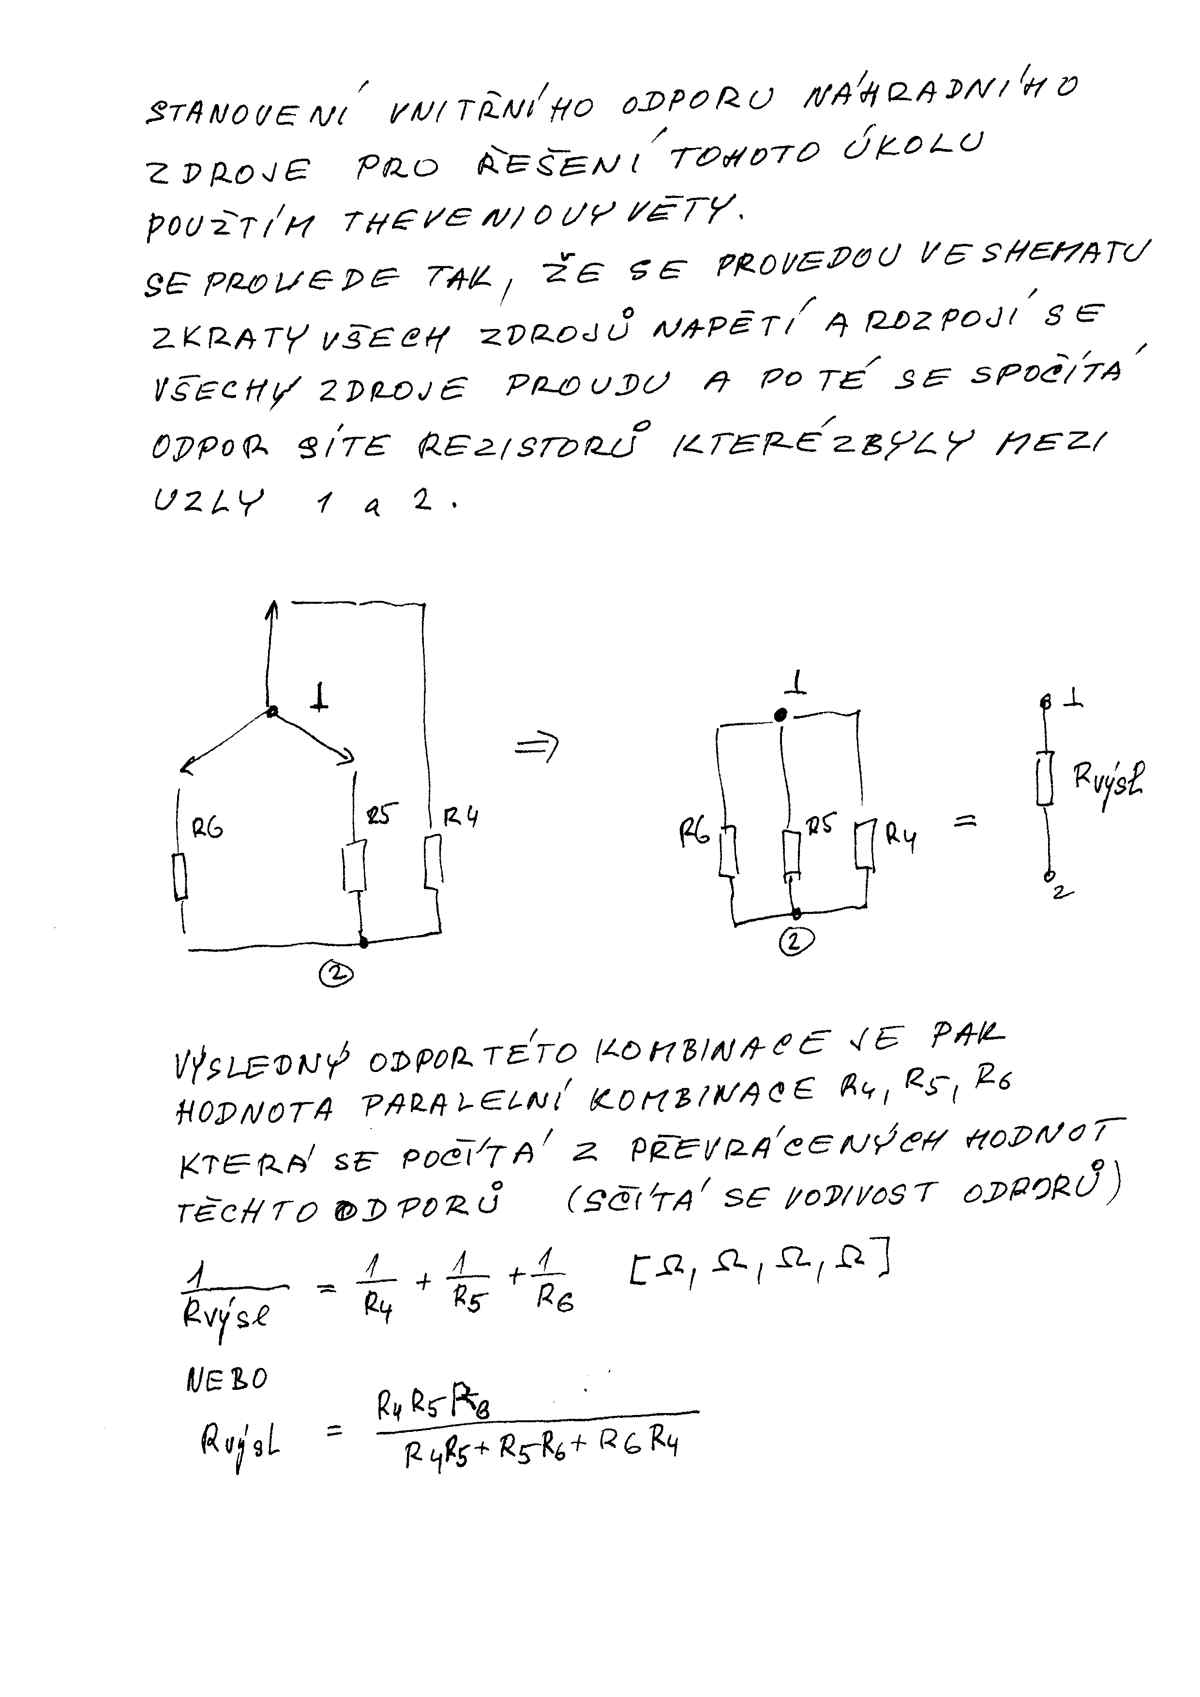 STANOVENÍ VNITŘNÍHO ODPORU NÁHRADNÍHO
ZDROJE PRO ŘEŠENÍ TOHOTO ÚKOLU
POUŽTÍM THEVENIOVY VĚTY.
SE PROVEDE TAK, ŽE SE PROVEDOU VE SHEMATU
ZKRATY VŠECH ZDROJŮ NAPĚTÍ A ROZPOJÍ SE
VŠECHY ZDROJE PROUDU A PO TÉ SE SPOČÍTÁ
ODPOR SÍTE REZISTORŮ KTERÉ ZBYLY MEZI
UZLY 1 a 2.
1
R6
R5
R4
2
⇒
1
R6
R5
R4
2
=
1
Rvýsl
2
VÝSLEDNÝ ODPOR TÉTO KOMBINACE JE PAK
HODNOTA PARALELNÍ KOMBINACE R4, R5, R6
KTERÁ SE POČÍTÁ Z PŘEVRÁCENÝCH HODNOT
TĚCHTO ODPORŮ (SČÍTÁ SE VODIVOST ODPORŮ)
1/Rvýsl = 1/R4 + 1/R5 + 1/R6 [Ω, Ω, Ω, Ω]
NEBO
Rvýsl = R4 R5 R6 / R4R5 + R5R6 + R6 R4